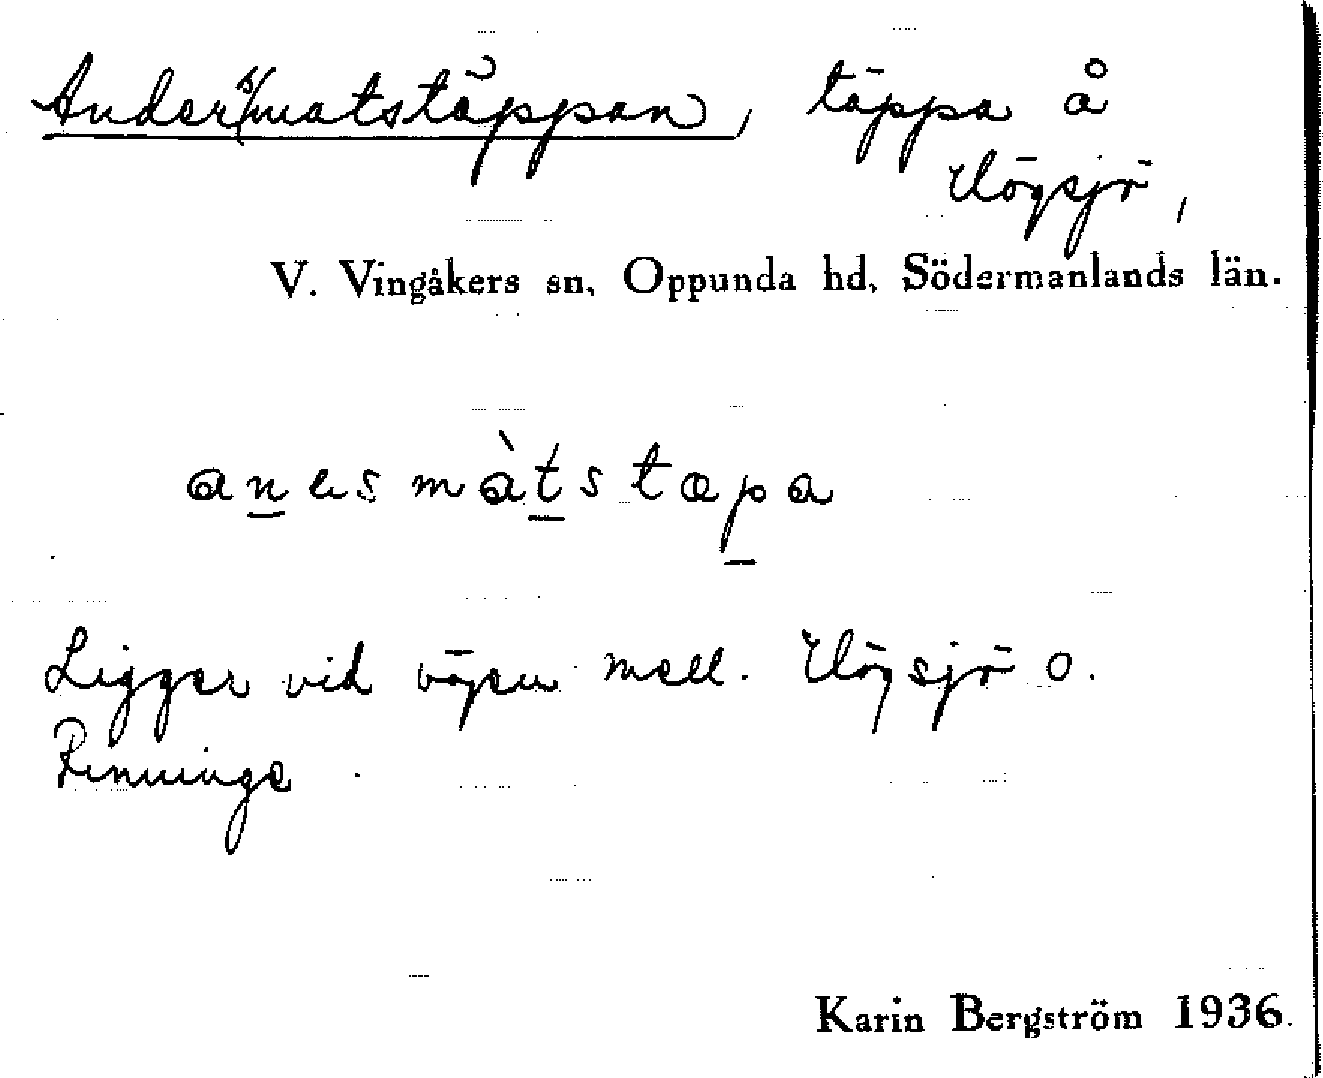 Andersmatstäppan, täppa å
Högsjö,
V. Vingåkers sn, Oppunda hd, Södermanlands län.
anəsmàtstæpa
Ligger vid vägen mell. Högsjö o.
Renninge.
Karin Bergström 1936.